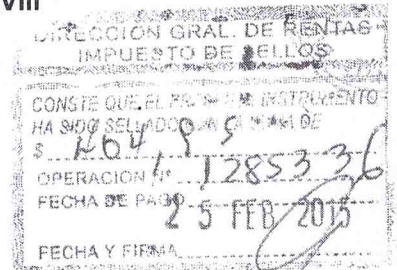 VIII
DIRECCION GRAL. DE RENTAS
IMPUESTO DE SELLOS
CONSTE QUE EL INSTRUMENTO
HA SIDO SELLADO CON LA SUMA DE
$
OPERACION Nº 1285336
FECHA DE PAGO 25 FEB 2015
FECHA Y FIRMA